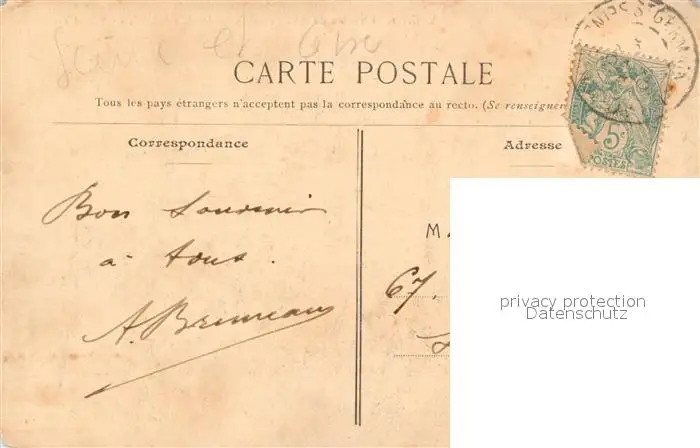 Seine et Oise
CARTE POSTALE
Tous les pays étrangers n'acceptent pas la correspondance au recto. (Se renseigner
Correspondance
Adresse
5c
POSTES
Bon Souvenir
à tous.
M
67,
privacy protection
Datenschutz